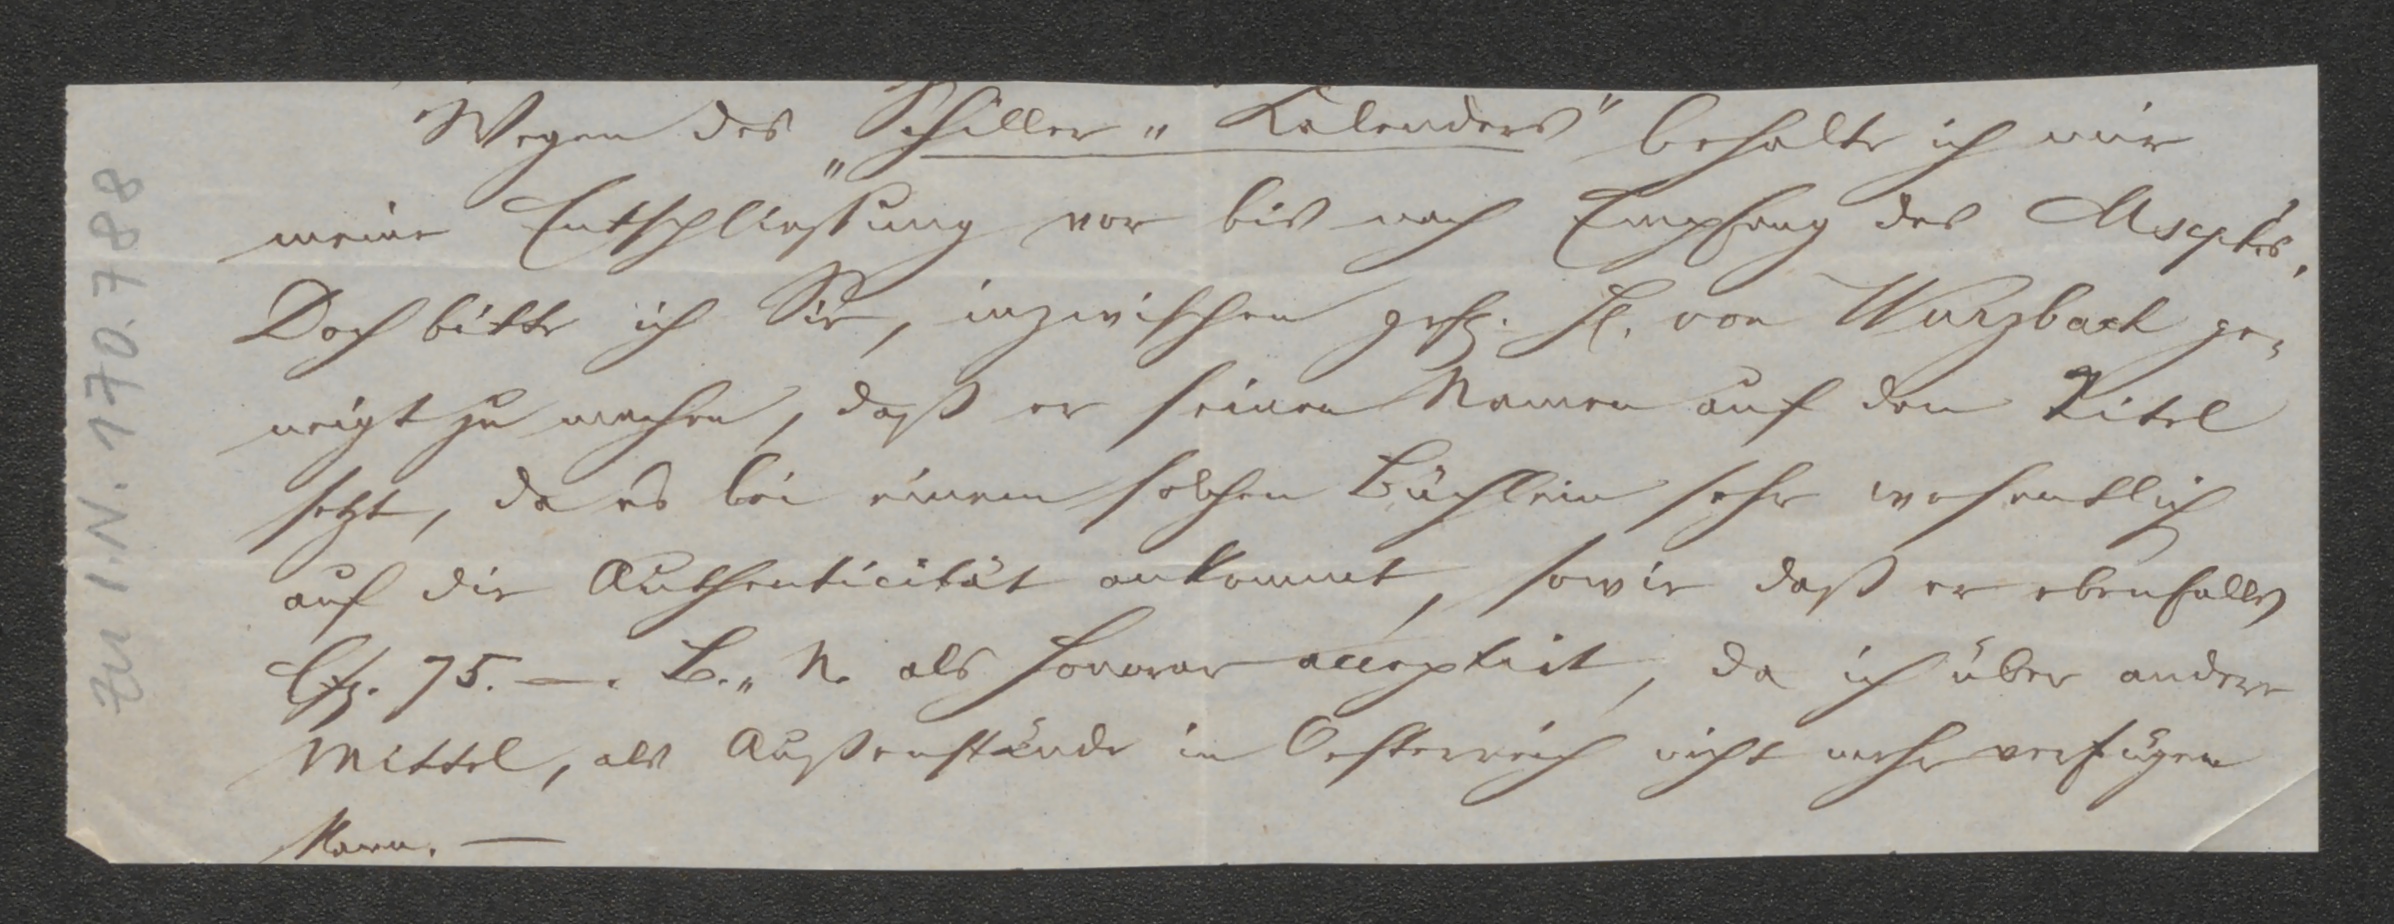 Wegen des „Schiller-Kalenders" behalte ich mir
meine Entschließung vor bis nach Empfang des Mscptes.
Doch bitte ich Sie, inzwischen gefl. H. von Wurzbach ge-
neigt zu machen, daß er seinen Namen auf den Titel
setzt, da es bei einem solchen Büchlein sehr wesentlich
auf die Authenticität ankommt, sowie daß er ebenfalls
75. —. B.-N. als Honorar acceptirt, da ich über andere
Mittel, als Außenstände in Oesterreich nicht mehr verfügen
kann. —
Zu I.N. 170.788